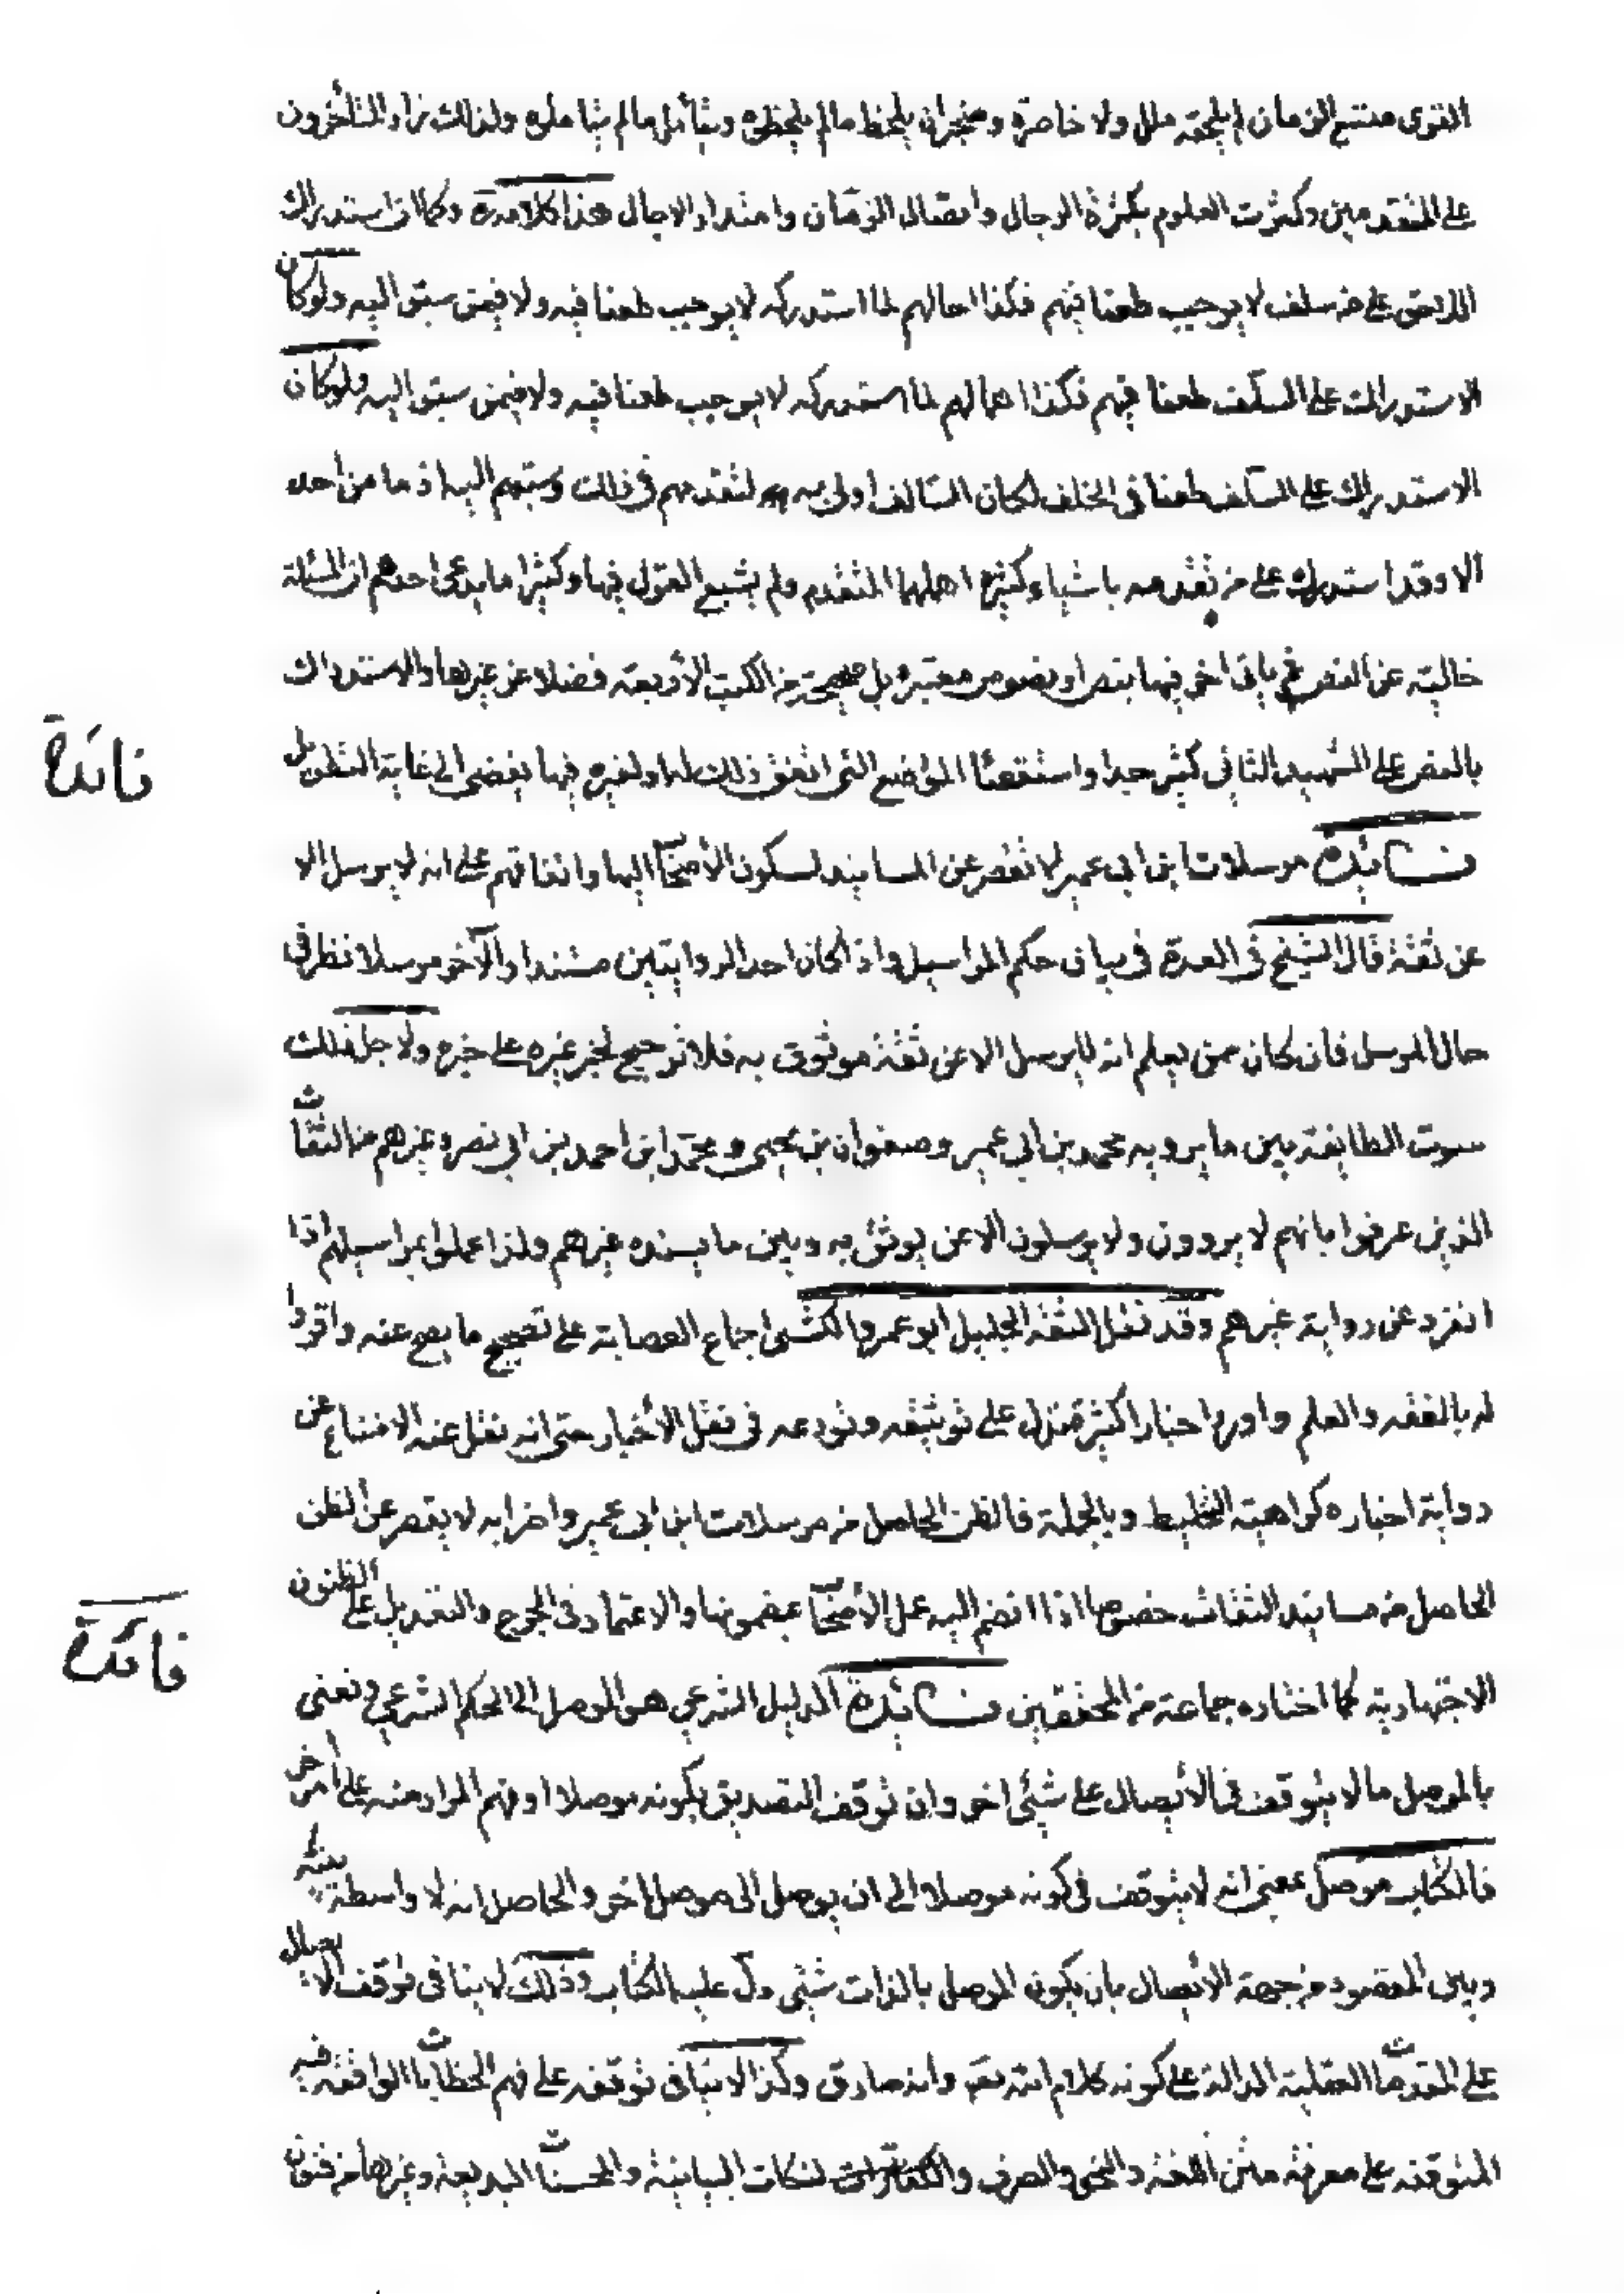 القوى متسع الزمان لم يلحقه ملل ولا خاصره ضجر ان يلحظ ما لم يلحظوه ويتأمل ما لم يتاملوه ولذلك زاد المتأخرون
على المتقدمين وكثرت العلوم بكثرة الرجال واتصال الزمان وامتداد الاجال هذا كلامه ره وكما ان استدراك
اللاحق على من سلف لا يوجب طعنا فيهم فكذا اهمالهم لما استدركه لا يوجب طعنا فيه ولا فيمن سبق اليه ولو كان
الاستدراك على السلف طعنا فيهم فكذا اهمالهم لما استدركه لا يوجب طعنا فيه ولا فيمن سبق اليه ولو كان
الاستدراك على السلف طعنا فى الخلف لكان السالف اولى به لتقدمهم فى ذلك وسبقهم اليه اذ ما من احد
الا وقد استدرك على من تقدمه باشياء كثيرة اهملها المتقدم ولم يشبع القول فيها وكثيرا ما يدعى احدهم ان المسئلة
خالية عن النص فياتى اخر فيها بنص او نصوص معتبرة بل صحيحة من الكتب الأربعة فضلا عن غيرها والاستدراك
بالنص على الشهيد الثانى كثير جدا واستقصاء المواضع التى اتفق ذلك له او لغيره فيها يفضى الى غاية التطويل
فائدة
فائدة مرسلات ابن ابى عمير لا تقصر عن المسانيد لسكون الأصحاب اليها واتفاقهم على انه لا يرسل الا
عن ثقة قال الشيخ فى العدة فى بيان حكم المراسيل واذا كان احد الروايتين مسندا والآخر مرسلا نظر فى
حال المرسل فان كان ممن يعلم انه لا يرسل الا عن ثقة موثوق به فلا ترجيح لخبر غيره على خبره ولاجل ذلك
سوت الطايفة بين ما يرويه محمد بن ابي عمير وصفوان بن يحيى و محمد ابن احمد بن ابى نصر وغيرهم من الثقات
الذين عرفوا بانهم لا يروون ولا يرسلون الا عن يوثق به وبين ما يسنده غيرهم ولذا عملوا بمراسيلهم اذا
انفرد عن رواية غيرهم وقد نقل الثقة الجليل ابو عمرو الكشى اجماع العصابة على تصحيح ما يصح عنه واقروا
له بالفقه والعلم واورد اخبارا كثيرة تدل على توثيقه وتودعه فى نقل الأخبار حتى انه نقل عنه الامتناع عن
رواية اخباره كراهية التخليط وبالجملة فالظن الحاصل من مرسلات ابن ابى عمير واضرابه لا يقصر عن الظن
الحاصل من مسانيد الثقات خصوصا اذا انضم اليه عمل الأصحاب بمضمونها والاعتماد فى الجرح والتعديل على الظنون
فائدة
الاجتهادية كما اختاره جماعة من المحققين فائدة الدليل الشرعي هو الموصل الى الحكم الشرعي ونعنى
بالموصل ما لا يتوقف فى الأيصال على شئى اخر وان توقف التصديق بكونه موصلا او فهم المراد منه على امر اخر
فالكتاب موصل بمعنى انه لا يتوقف فى كونه موصلا الى ان يوصل الى موصل اخر والحاصل انه لا واسطة بينه
وبين المقصود من جهة الأيصال بان يكون الموصل بالذات شئى دل عليه الكتاب وذلك لا ينافى توقف الايصال
على المقدمات العقلية الدالة على كونه كلام الله تعه وانه صادق وكذا لا ينافى توقفه على فهم الخطابات الواقعة فيه
المتوقفة على معرفة متن اللغة والنحو والصرف والنكات البيانية والمحسنات البديعة وغيرها من فنون